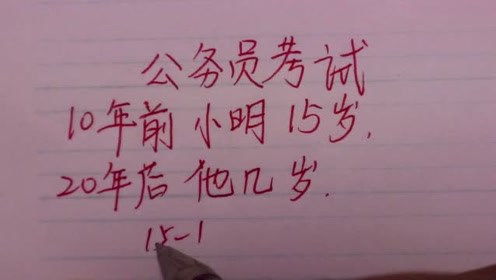 公务员考试
10年前小明15岁.
20年后他几岁.
15-1